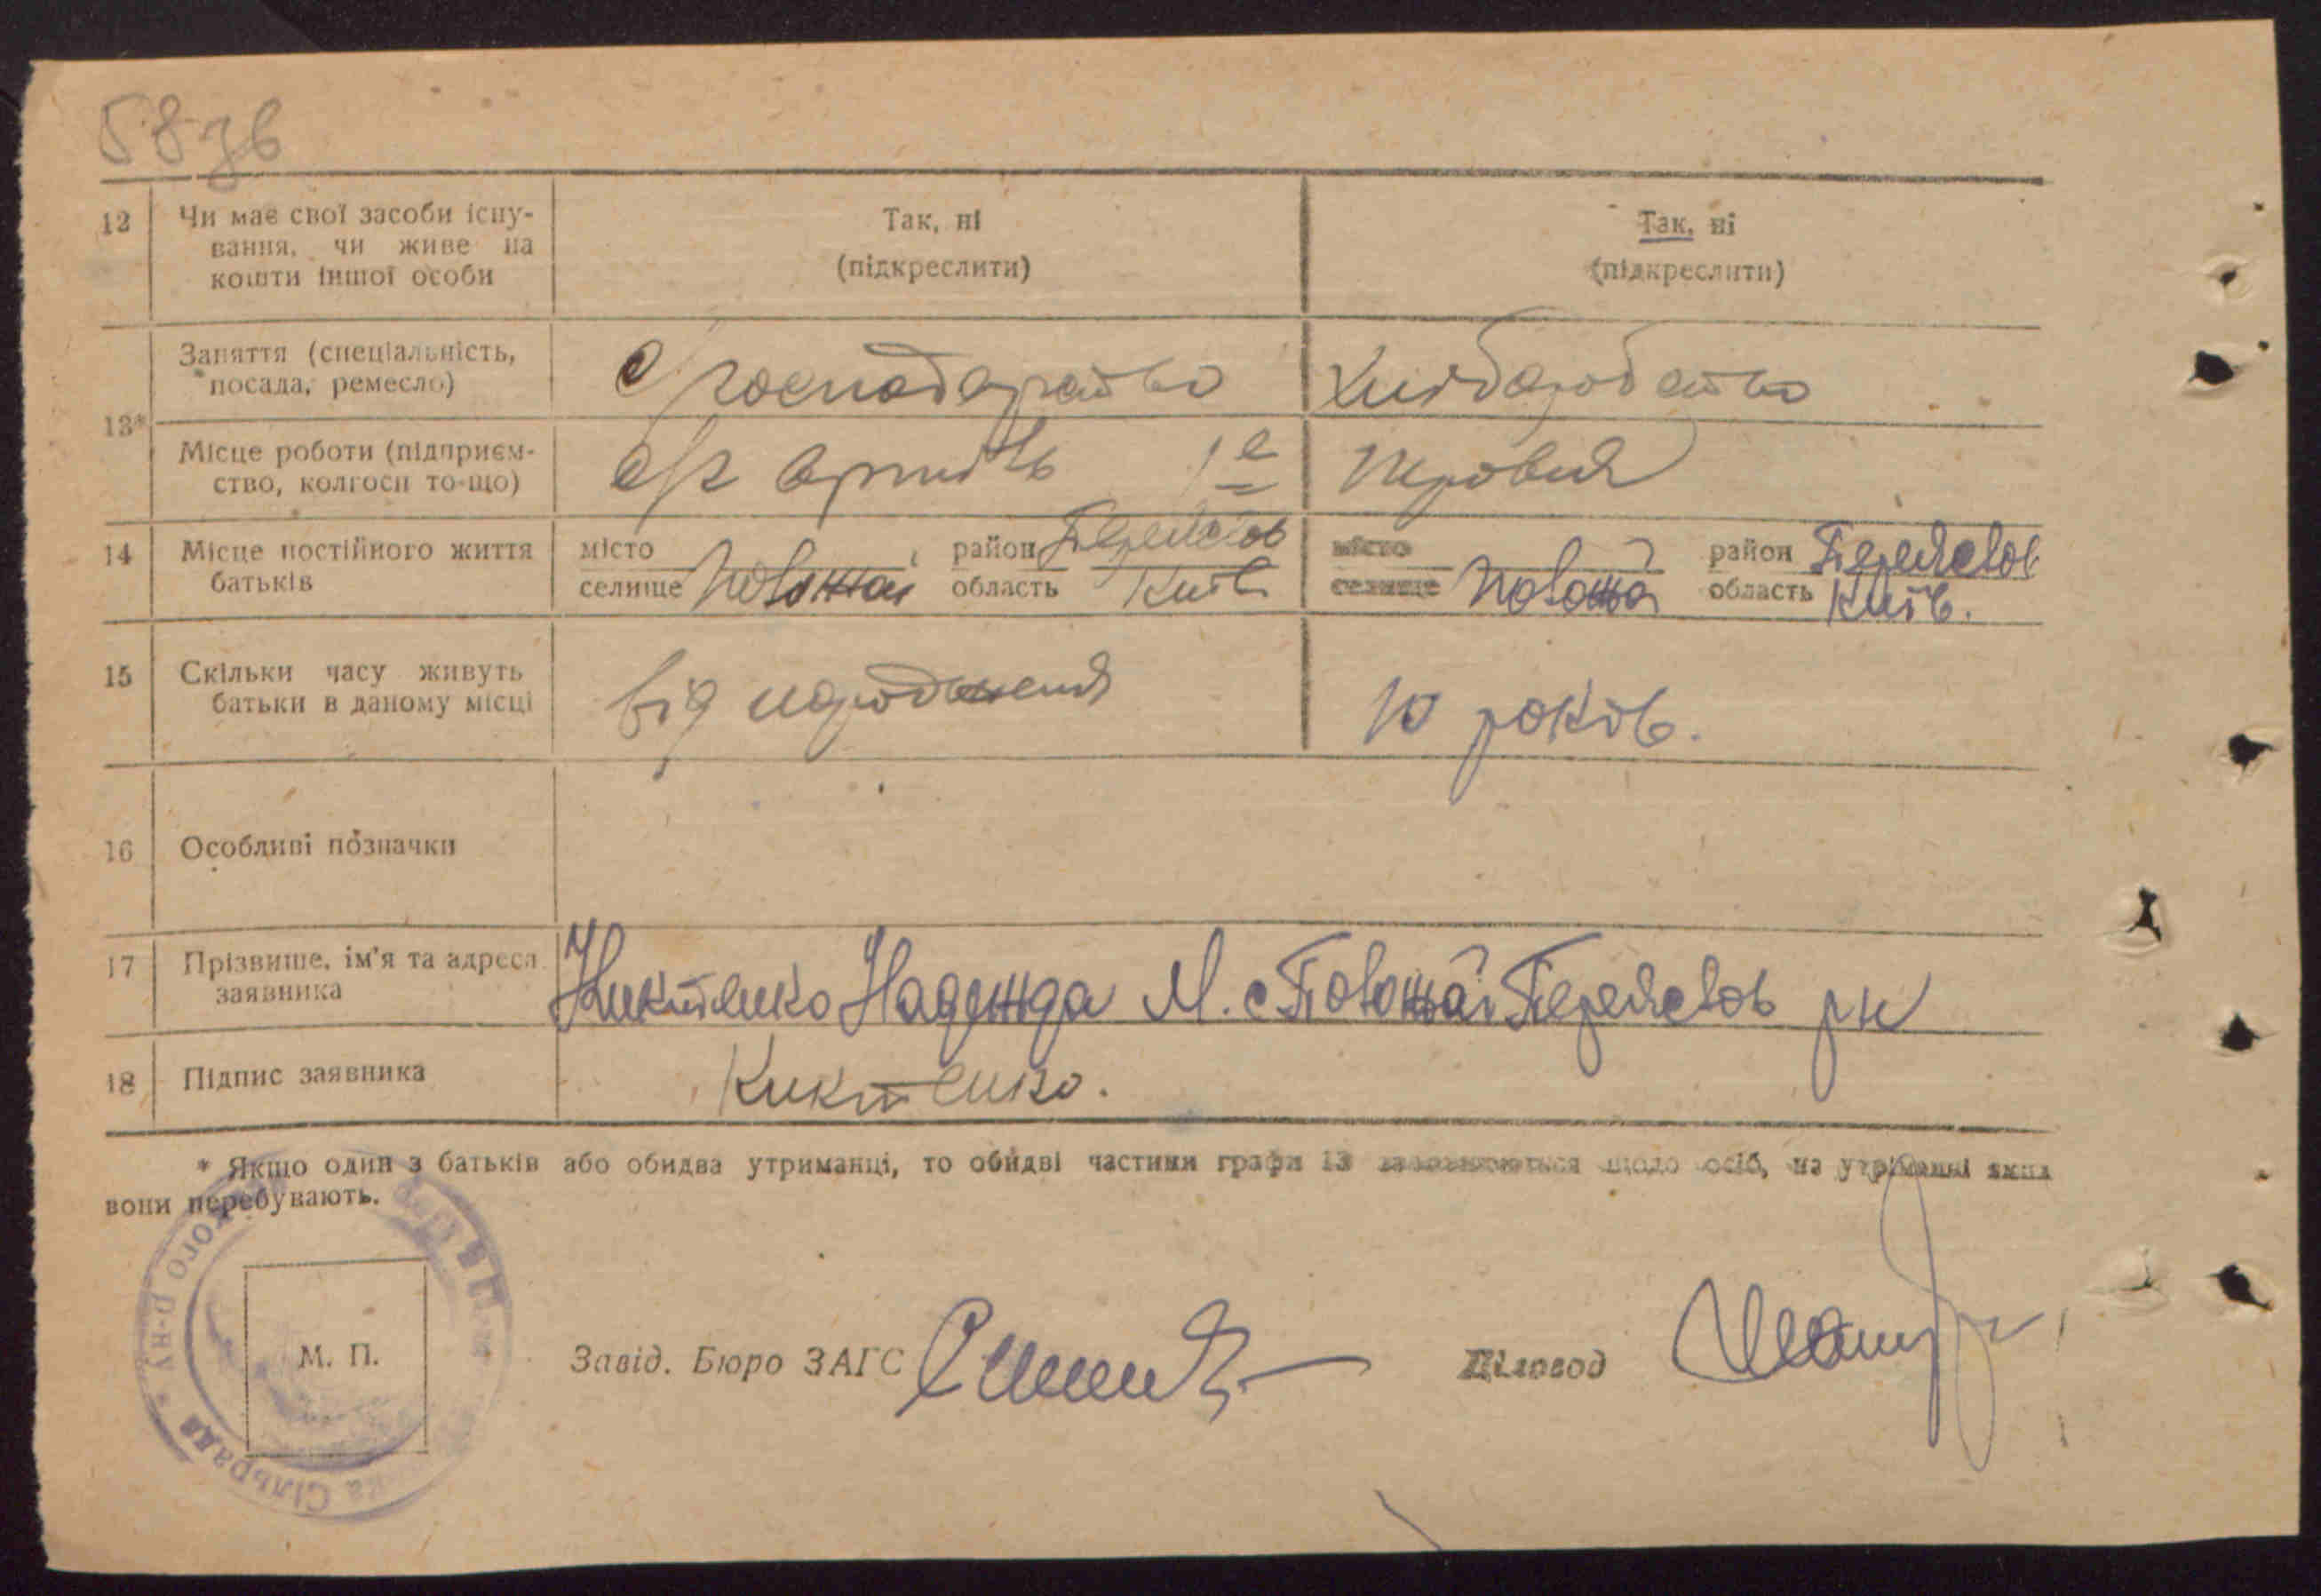 583в
12 Чи має свої засоби існу-
вання, чи живе на
кошти іншої особи
Так, ні
(підкреслити)
Так, ні
(підкреслити)
13*
Заняття (спеціальність,
посада, ремесло)
с/господарство
Хліборобство
Місце роботи (підприєм-
ство, колгосп то-що)
с/г артіль 1е Травня
14 Місце постійного життя
батьків
місто
селище Повожай
район Переяслов
область Київ
місто
селище Повожай
район Переяслов
область Київ.
15 Скільки часу живуть
батьки в даному місці
від народження
10 років.
16 Особливі позначки
17 Прізвище, ім'я та адреса
заявника
Никитенко Надежда М. с Повожай Переяслов рн
18 Підпис заявника
Никитенко.
* Якщо один з батьків або обидва утриманці, то обидві частини графи 13 заповнюються щодо осіб, на утриманні яких
вони перебувають.
М. П.
Сільрада
ого р-ну
Завід. Бюро ЗАГС
Діловод